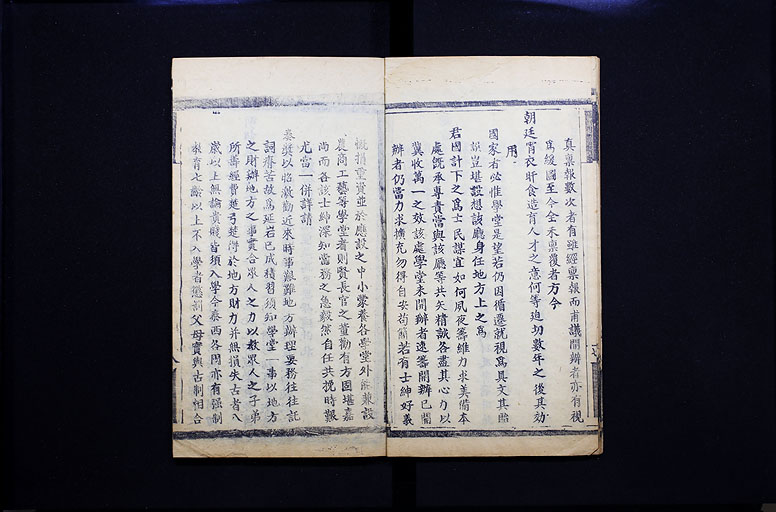 真稟報數次者有雖經稟報而甫議開辦者亦有視
為緩圖至今全未稟覆者方今
朝廷宵衣旰食造育人才之意何等迫切數年之後其効
用
國家者必惟學堂是望若仍因循遷就視為具文其貽
誤豈堪設想該廳身任地方上之為
君國計下之為士民謀宜如何夙夜籌維力求美備本
處既承專責當與該廳等共矢精誠各盡其心力以
冀收萬一之效該處學堂未開辦者速籌開辦已開
辦者仍當力求擴充勿得自安苟簡若有士紳好義
慨捐重資並於應設之中小蒙養各學堂外能兼設
農商工藝等學堂者則賢長官之董勸有方固堪嘉
尚而各該士紳深知當務之急毅然自任共挽時艱
尤當一併詳請
奏獎以昭激勸近來時事艱難地方辦理要務往往託
詞瘠苦故為延宕已成積習須知學堂一事以地方
之財辦地方之事實合眾人之力以教眾人之子弟
所籌經費楚弓楚得於地方財力并無損失古者八
歲以上無論貴賤皆須入學今泰西各國亦有强制
教育七齡以上不入學者懲罰父母實與古制相合